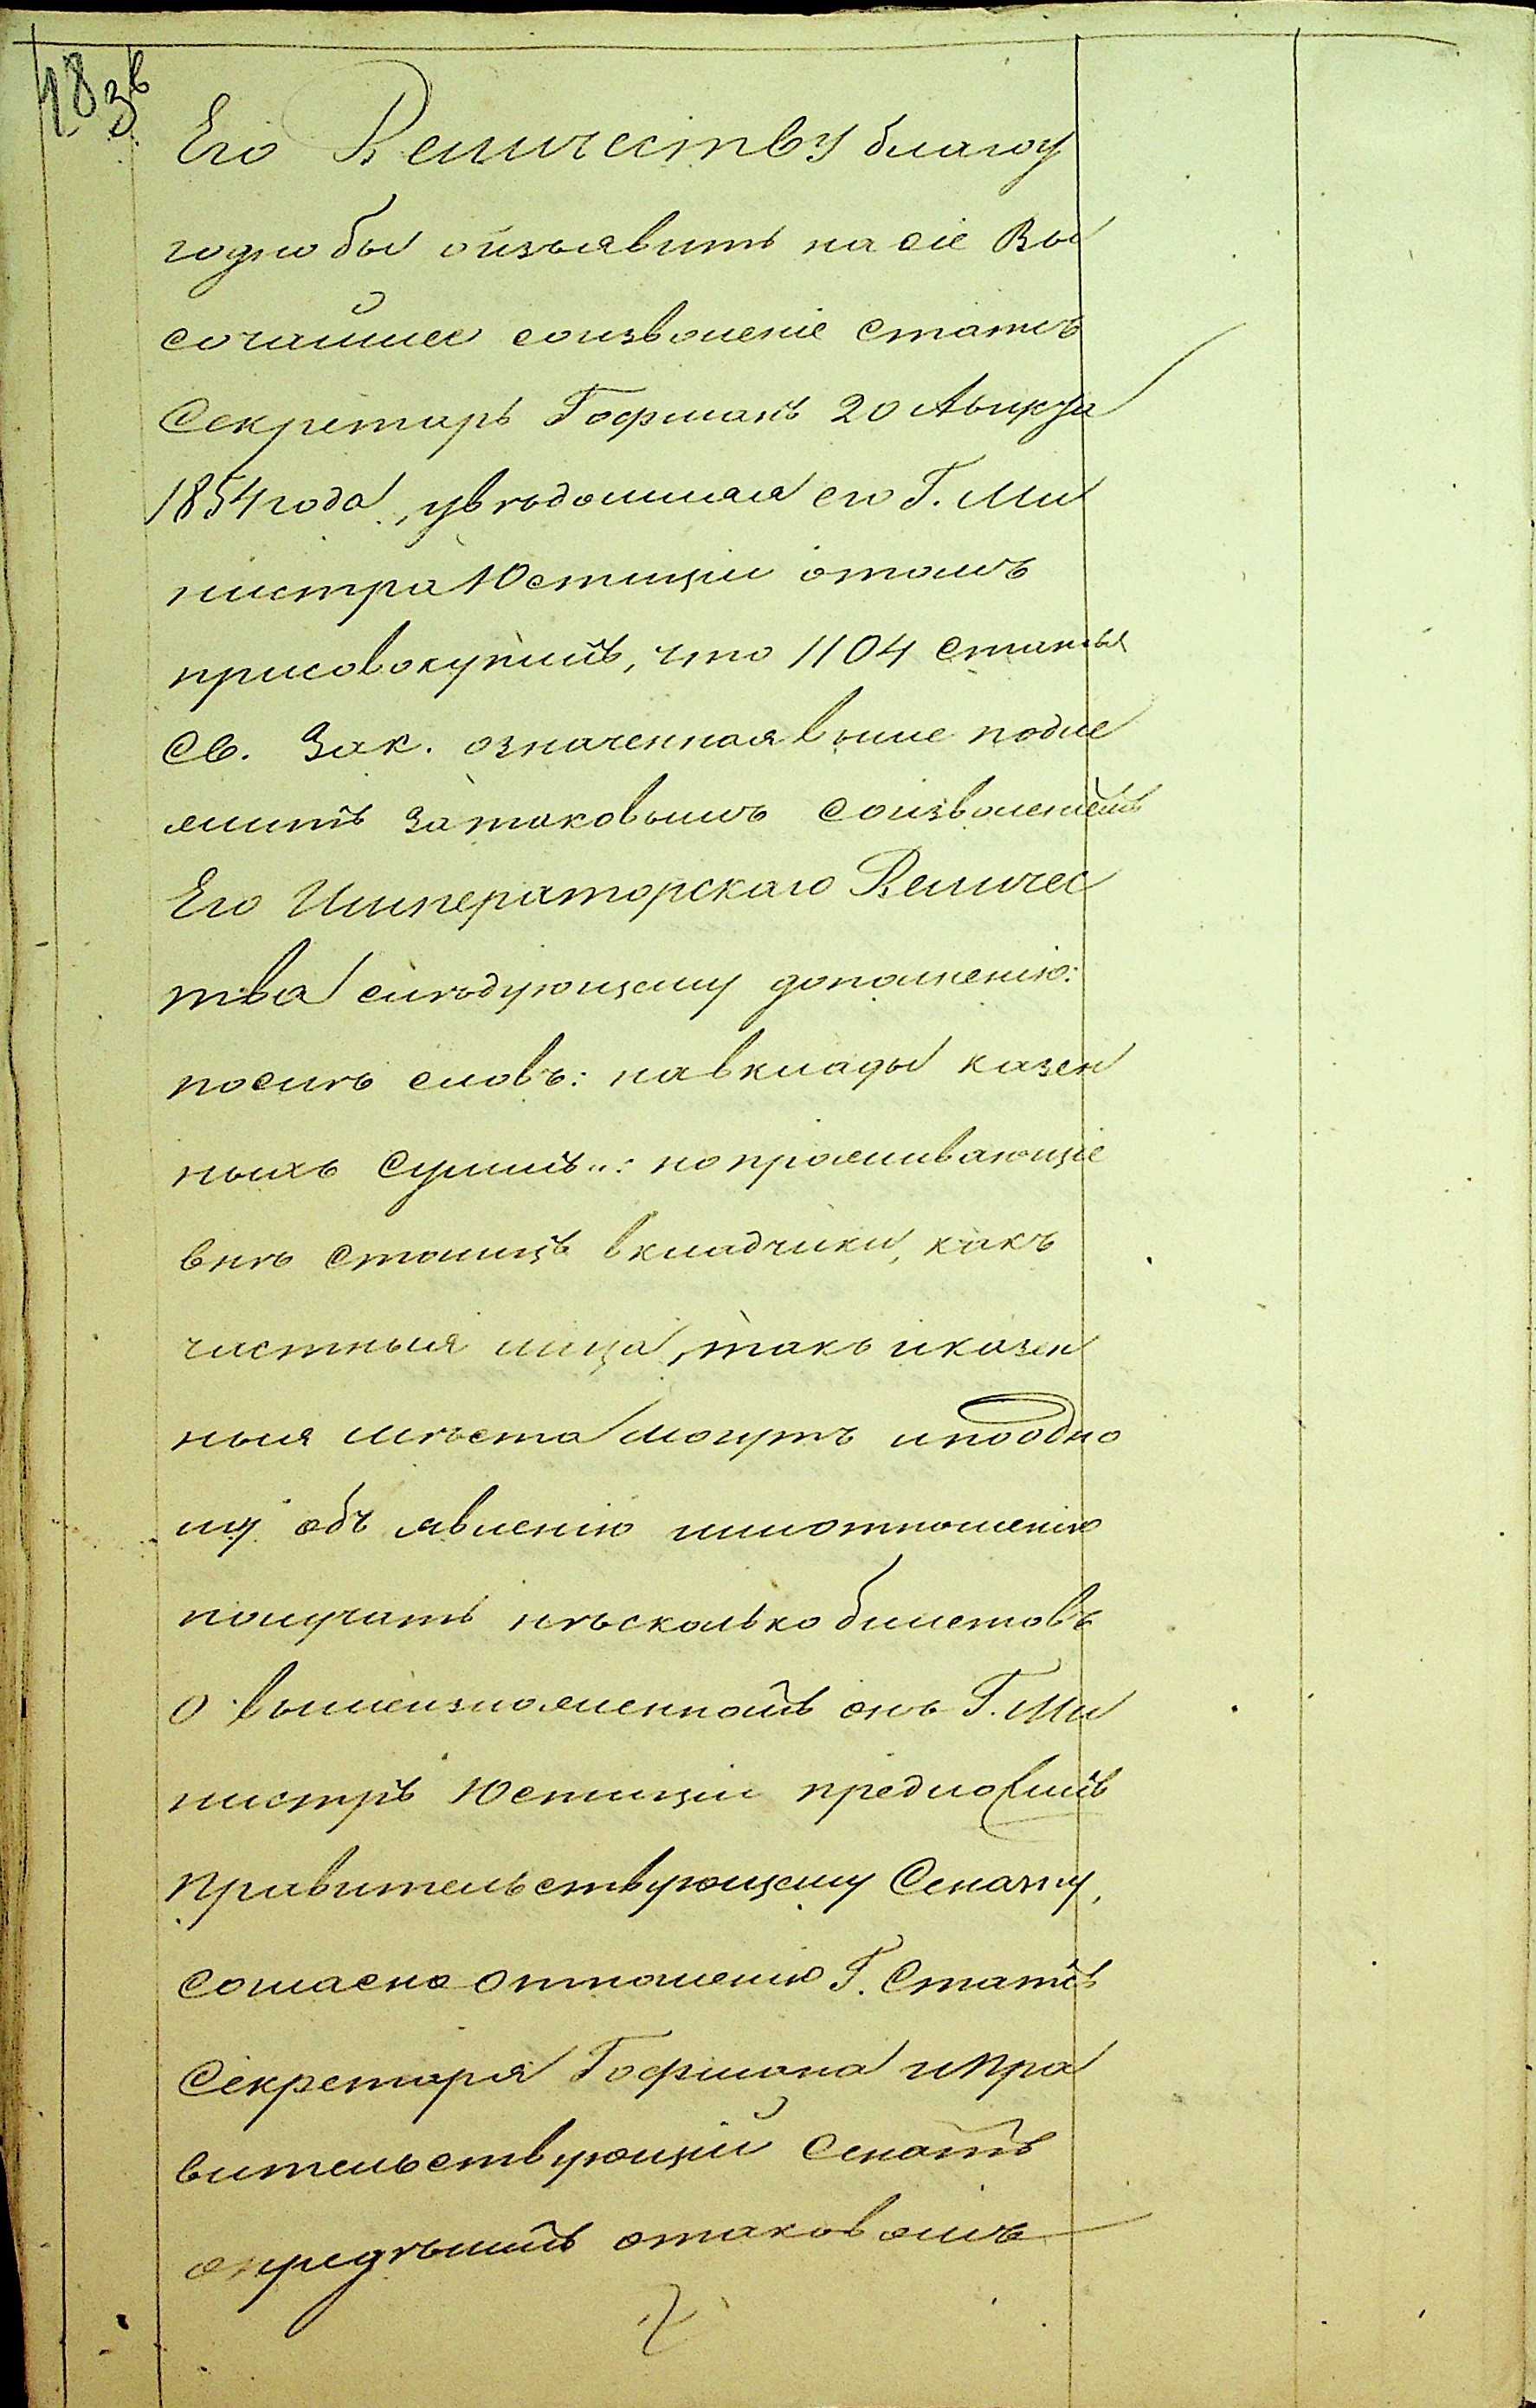 183в
Его Величеству благоу
годно было изъявить на сіе Вы
сочайшее соизволеніе статсъ
Секретарь Гофманъ 20 Августа
1854 года, увѣдомляя его Г. Ми
нистра Юстиціи о томъ
присовокупилъ, что 1104 статья
Св. Зак. означенная выше подле
житъ за таковымъ соизволеніемъ
Его Императорскаго Величес
тва слѣдующему дополненію:
послѣ словъ: на вклады казен
ныхъ суммъ..: но проживающіе
внѣ столицъ вкладчики, какъ
частныя лица, такъ и казен
ныя мѣста могутъ и по одно
му объявленію или отношенію
получать нѣсколько билетовъ
О вышеизложенномъ онъ Г. Ми
нистръ Юстиціи предложилъ
Правительствующему Сенату,
согласно отношенію Г. Статсъ
Секретаря Гофмана и Пра
вительствующій Сенатъ
опредѣлилъ о таковомъ